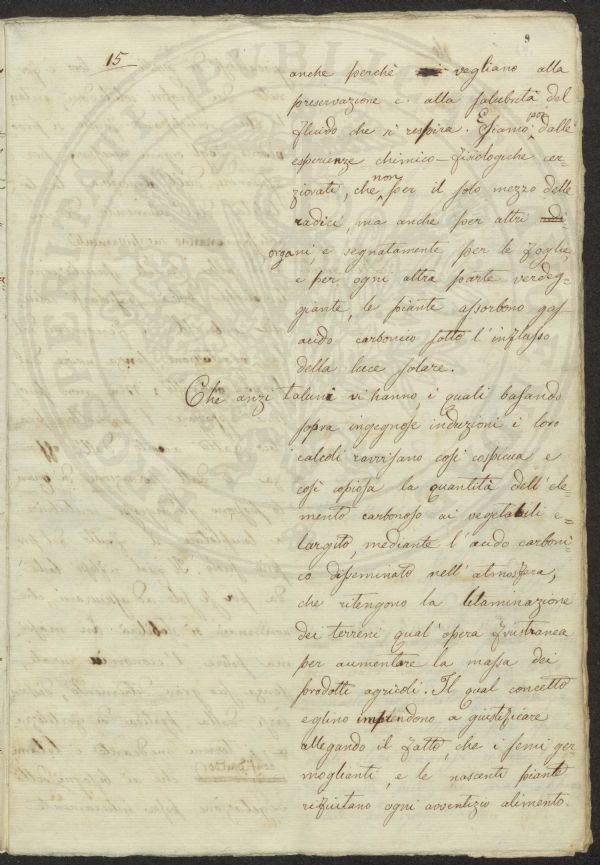 15
anche perchè vegliano alla
preservazione e alla salubrità del
fluido che si respira. Siamo poi dalle
esperienze chimico-fisiologiche cer-
ziorati, che non per il solo mezzo delle
radici, ma anche per altri
organi, e segnatamente per le foglie,
e per ogni altra parte verdeg=
giante, le piante assorbono gas
acido carbonico sotto l'influsso
della luce solare.
Che anzi taluni vi hanno, i quali basando
sopra ingegnose induzioni i loro
calcoli ravvisano così cospicua e
così copiosa la quantità dell'ele=
mento carbonoso ai vegetabili e=
largito, mediante l'acido carboni=
co disseminato nell'atmosfera,
che ritengono la letaminazione
dei terreni qual'opera frustranea
per aumentare la massa dei
prodotti agricoli. Il qual concetto
eglino imprendono a giustificare
allegando il fatto, che i semi ger
moglianti, e le nascenti piante
rifiutano ogni avventizio alimento.